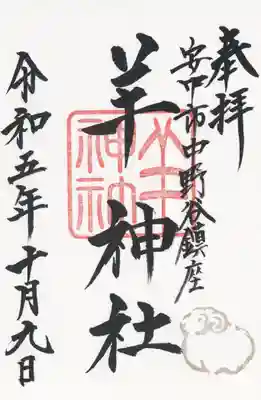 奉拝
安中市中野谷鎮座
羊神社
令和五年十月九日